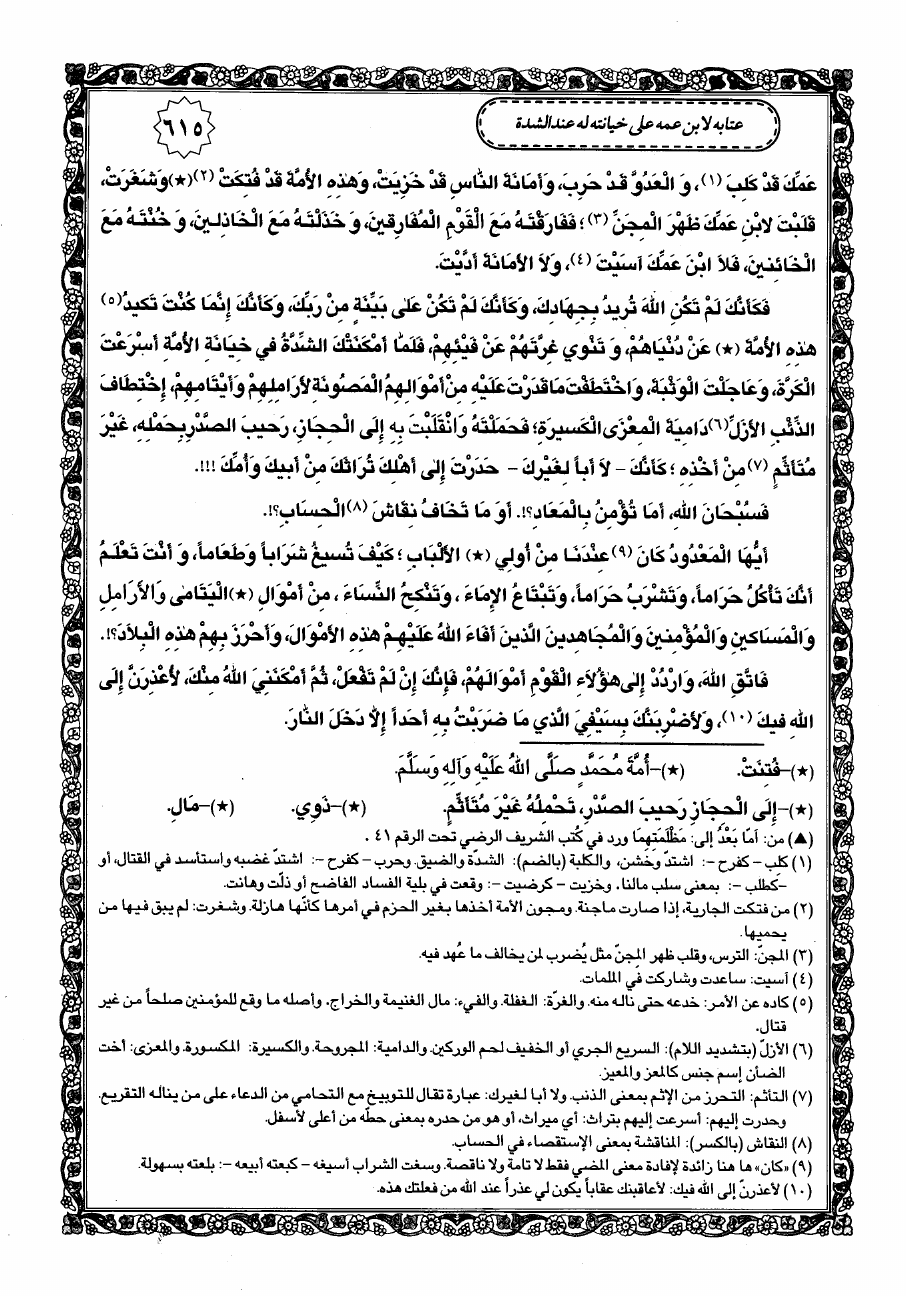 عتابه لابن عمه على خيانته له عند الشدة
٦١٥
عَمِّكَ قَدْ كَلِبَ (١)، وَ الْعَدُوَّ قَدْ حَرِبَ، وَأَمَانَةَ النَّاسِ قَدْ خَزِيَتْ، وَهٰذِهِ الأُمَّةَ قَدْ فُتِكَتْ (٢) (★) وَشَغَرَتْ،
قَلَبْتَ لابْنِ عَمِّكَ ظَهْرَ الْمِجَنِّ (٣)؛ فَفَارَقْتَهُ مَعَ الْقَوْمِ الْمُفَارِقينَ، وَ خَذَلْتَهُ مَعَ الْخَاذِلينَ، وَ خُنْتَهُ مَعَ
الْخَائِنينَ، فَلاَ ابْنَ عَمِّكَ آسَيْتَ (٤)، وَلاَ الأَمَانَةَ أَدَّيْتَ.
فَكَأَنَّكَ لَمْ تَكُنِ اللّٰهَ تُريدُ بِجِهَادِكَ، وَكَأَنَّكَ لَمْ تَكُنْ عَلىٰ بَيِّنَةٍ مِنْ رَبِّكَ، وَكَأَنَّكَ إِنَّمَا كُنْتَ تَكيدُ (٥)
هٰذِهِ الأُمَّةَ (★) عَنْ دُنْيَاهُمْ، وَ تَنْوي غِرَّتَهُمْ عَنْ فَيْئِهِمْ، فَلَمَّا أَمْكَنَتْكَ الشِّدَّةُ في خِيَانَةِ الأُمَّةِ أَسْرَعْتَ
الْكَرَّةَ، وَعَاجَلْتَ الْوَثْبَةَ، وَاخْتَطَفْتَ مَا قَدَرْتَ عَلَيْهِ مِنْ أَمْوَالِهِمُ الْمَصُونَةِ لأَرَامِلِهِمْ وَأَيْتَامِهِمْ، إِخْتِطَافَ
الذِّئْبِ الأَزَلِّ (٦) دَامِيَةَ الْمِعْزَى الْكَسيرَةِ؛ فَحَمَلْتَهُ وَانْقَلَبْتَ بِهِ إِلَى الْحِجَازِ، رَحيبَ الصَّدْرِ بِحَمْلِهِ، غَيْرَ
مُتَأَثِّمٍ (٧) مِنْ أَخْذِهِ؛ كَأَنَّكَ - لاَ أَباً لِغَيْرِكَ - حَدَرْتَ إِلىٰ أَهْلِكَ تُرَاثَكَ مِنْ أَبيكَ وَأُمِّكَ !!!.
فَسُبْحَانَ اللّٰهِ، أَمَا تُؤْمِنُ بِالْمَعَادِ؟!. أَوَ مَا تَخَافُ نِقَاشَ (٨) الْحِسَابِ؟!.
أَيُّهَا الْمَعْدُودُ كَانَ (٩) عِنْدَنَا مِنْ أُولِي (★) الأَلْبَابِ؛ كَيْفَ تُسيغُ شَرَاباً وَطَعَاماً، وَ أَنْتَ تَعْلَمُ
أَنَّكَ تَأْكُلُ حَرَاماً، وَتَشْرَبُ حَرَاماً، وَتَبْتَاعُ الإِمَاءَ، وَتَنْكِحُ النِّسَاءَ، مِنْ أَمْوَالِ (★) الْيَتَامىٰ وَالأَرَامِلِ
وَالْمَسَاكينِ وَالْمُؤْمِنينَ وَالْمُجَاهِدينَ الَّذينَ أَفَاءَ اللّٰهُ عَلَيْهِمْ هٰذِهِ الأَمْوَالَ، وَأَحْرَزَ بِهِمْ هٰذِهِ الْبِلاَدَ؟!.
فَاتَّقِ اللّٰهَ، وَارْدُدْ إِلىٰ هٰؤُلاَءِ الْقَوْمِ أَمْوَالَهُمْ، فَإِنَّكَ إِنْ لَمْ تَفْعَلْ، ثُمَّ أَمْكَنَنِيَ اللّٰهُ مِنْكَ، لأُعْذِرَنَّ إِلَى
اللّٰهِ فيكَ (١٠)، وَلأَضْرِبَنَّكَ بِسَيْفِيَ الَّذي مَا ضَرَبْتُ بِهِ أَحَداً إِلاَّ دَخَلَ النَّارَ.
(★)-فُتِنَتْ. (★)-أُمَّةَ مُحَمَّدٍ صَلَّى اللّٰهُ عَلَيْهِ وَآلِهِ وَسَلَّمَ.
(★)-إِلَى الْحِجَازِ رَحيبَ الصَّدْرِ، تَحْمِلُهُ غَيْرَ مُتَأَثِّمٍ. (★)-ذَوِي. (★)-مَالِ.
(▲) من: أَمَّا بَعْدُ إلى: مَظْلَمَتِهِمَا ورد في كُتب الشريف الرضي تحت الرقم ٤١ .
(١) كلِب - كفرح -: اشتدّ وخشن، والكلبة (بالضم): الشدّة والضيق. وحرب - كفرح -: اشتدّ غضبه واستأسد في القتال، أو
-كطلب -: بمعنى سلب مالنا. وخزيت - كرضيت -: وقعت في بلية الفساد الفاضح أو ذلّت وهانت.
(٢) من فتكت الجارية، إذا صارت ماجنة. ومجون الأمة أخذها بغير الحزم في أمرها كأنّها هازلة. وشغرت: لم يبق فيها من
يحميها.
(٣) المجنّ: الترس، وقلب ظهر المجنّ مثل يُضرب لمن يخالف ما عُهد فيه.
(٤) آسيت: ساعدت وشاركت في الملمات.
(٥) كاده عن الأمر: خدعه حتى ناله منه. والغرّة: الغفلة. والفيء: مال الغنيمة والخراج. وأصله ما وقع للمؤمنين صلحاً من غير
قتال.
(٦) الأزلّ (بتشديد اللام): السريع الجري أو الخفيف لحم الوركين. والدامية: المجروحة. والكسيرة: المكسورة. والمعزى: أخت
الضأن إسم جنس كالمعز والمعيز.
(٧) التأثم: التحرز من الإثم بمعنى الذنب. ولا أبا لغيرك: عبارة تقال للتوبيخ مع التحامي من الدعاء على من يناله التقريع.
وحدرت إليهم: أسرعت إليهم بتراث: أي ميراث، أو هو من حدره بمعنى حطّه من أعلى لأسفل.
(٨) النقاش (بالكسر): المناقشة بمعنى الإستقصاء في الحساب.
(٩) «كان» ها هنا زائدة لإفادة معنى المضي فقط لا تامة ولا ناقصة. وسغت الشراب أسيغه - كبعته أبيعه -: بلعته بسهولة.
(١٠) لأعذرنّ إلى الله فيك: لأعاقبنك عقاباً يكون لي عذراً عند الله من فعلتك هذه.